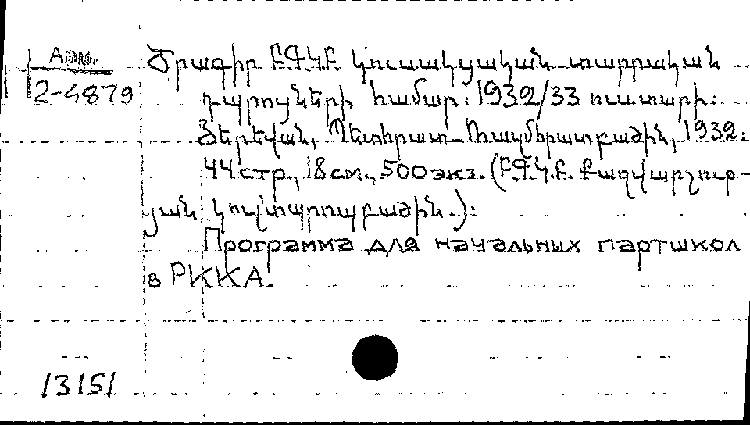 Арм.
2-4879
Ծրագիր ԲԳԿԲ կուսակցական տարրական
դպրոցների համար։ 1932/33 ուստարի։
Յերեվան, Պետհրատ–Ռազմհրատբաժին, 1932։
44 стр., 18 см., 500 экз. (ԲԳԿԲ Քաղվարչութ-
յան կուլտպրոպբաժին.)։
Программа для начальных партшкол
в РККА.
13151